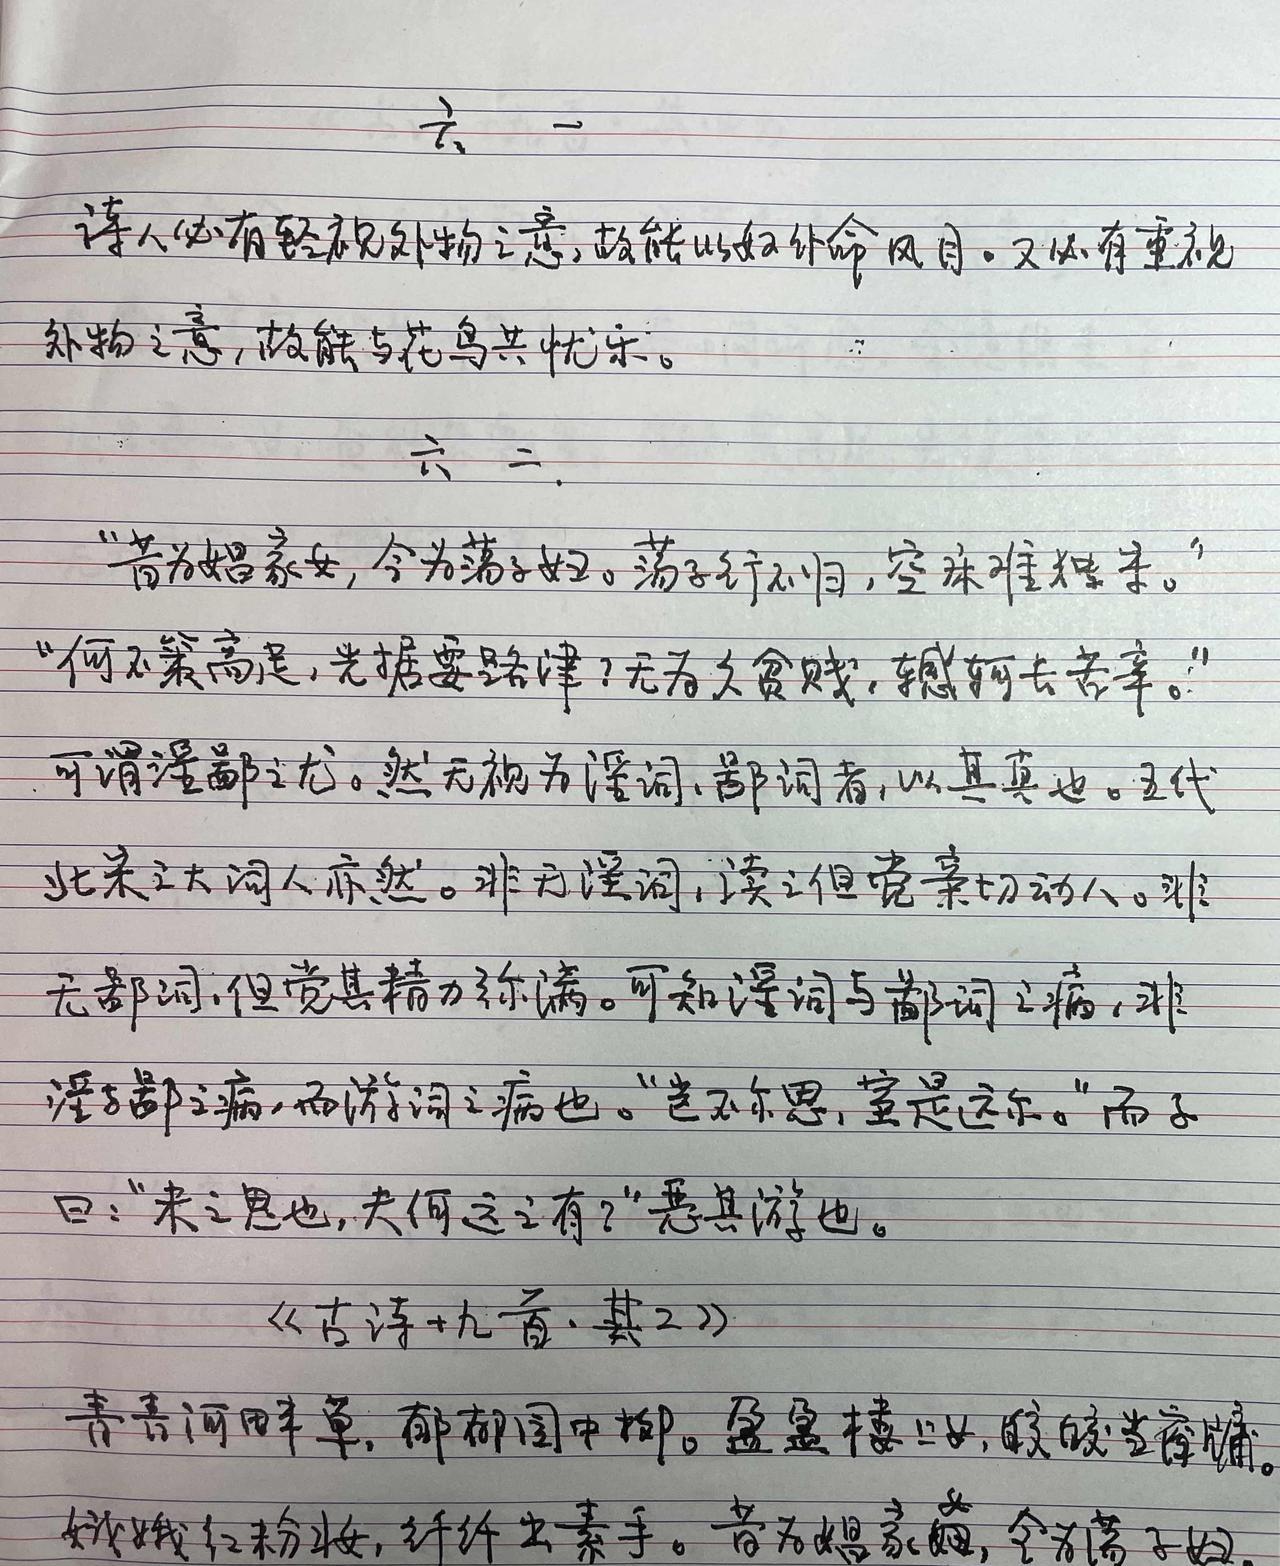 六一
诗人必有轻视外物之意,故能以奴仆命风月。又必有重视
外物之意,故能与花鸟共忧乐。
六二
“昔为娼家女,今为荡子妇。荡子行不归,空床难独守。”
“何不策高足,先据要路津?无为久贫贱,轗轲长苦辛。”
可谓淫鄙之尤。然无视为淫词、鄙词者,以其真也。五代
北宋之大词人亦然。非无淫词,读之但觉亲切动人。非
无鄙词,但觉其精力弥满。可知淫词与鄙词之病,非
淫与鄙之病,而游词之病也。“岂不尔思,室是远尔。”而子
曰:“未之思也,夫何远之有?”恶其游也。
《古诗十九首·其2》
青青河畔草,郁郁园中柳。盈盈楼上女,皎皎当窗牖。
娥娥红粉妆,纤纤出素手。昔为娼家女,今为荡子妇。